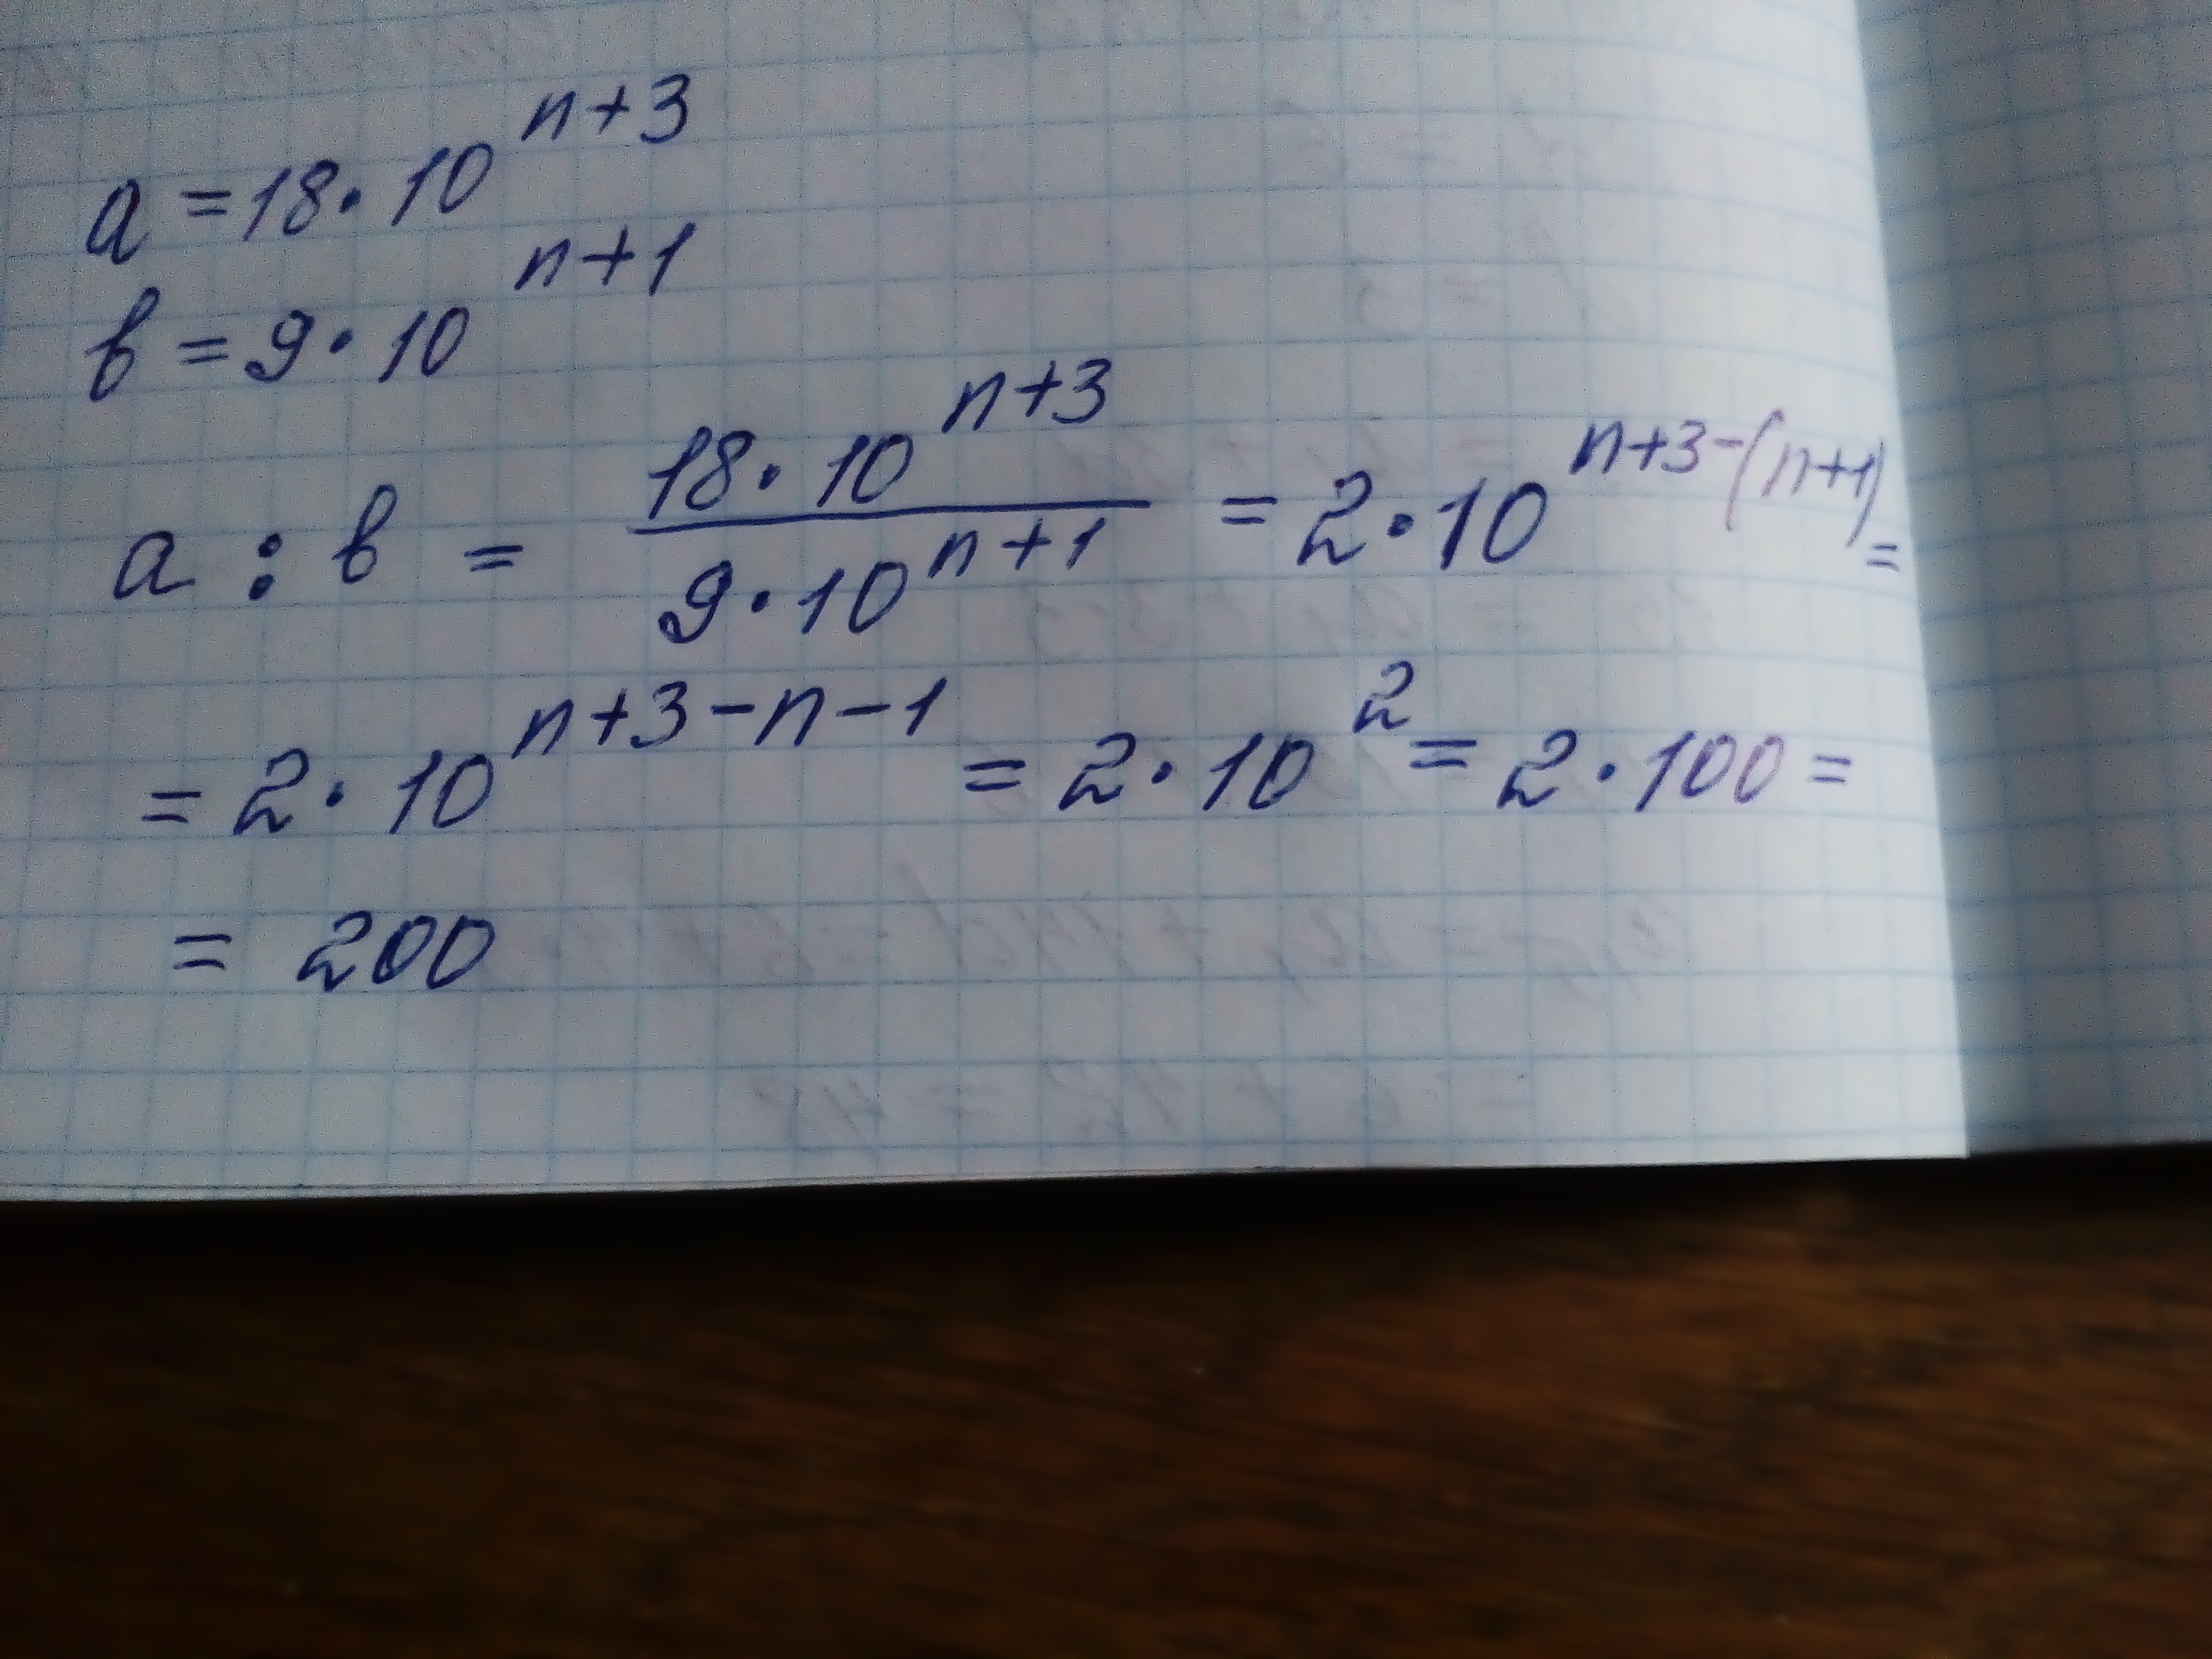 a = 18 · 10^{n+3}
в = 9 · 10^{n+1}
a : в = \frac{18 · 10^{n+3}}{9 · 10^{n+1}} = 2 · 10^{n+3-(n+1)} =
= 2 · 10^{n+3-n-1} = 2 · 10^{2} = 2 · 100 =
= 200